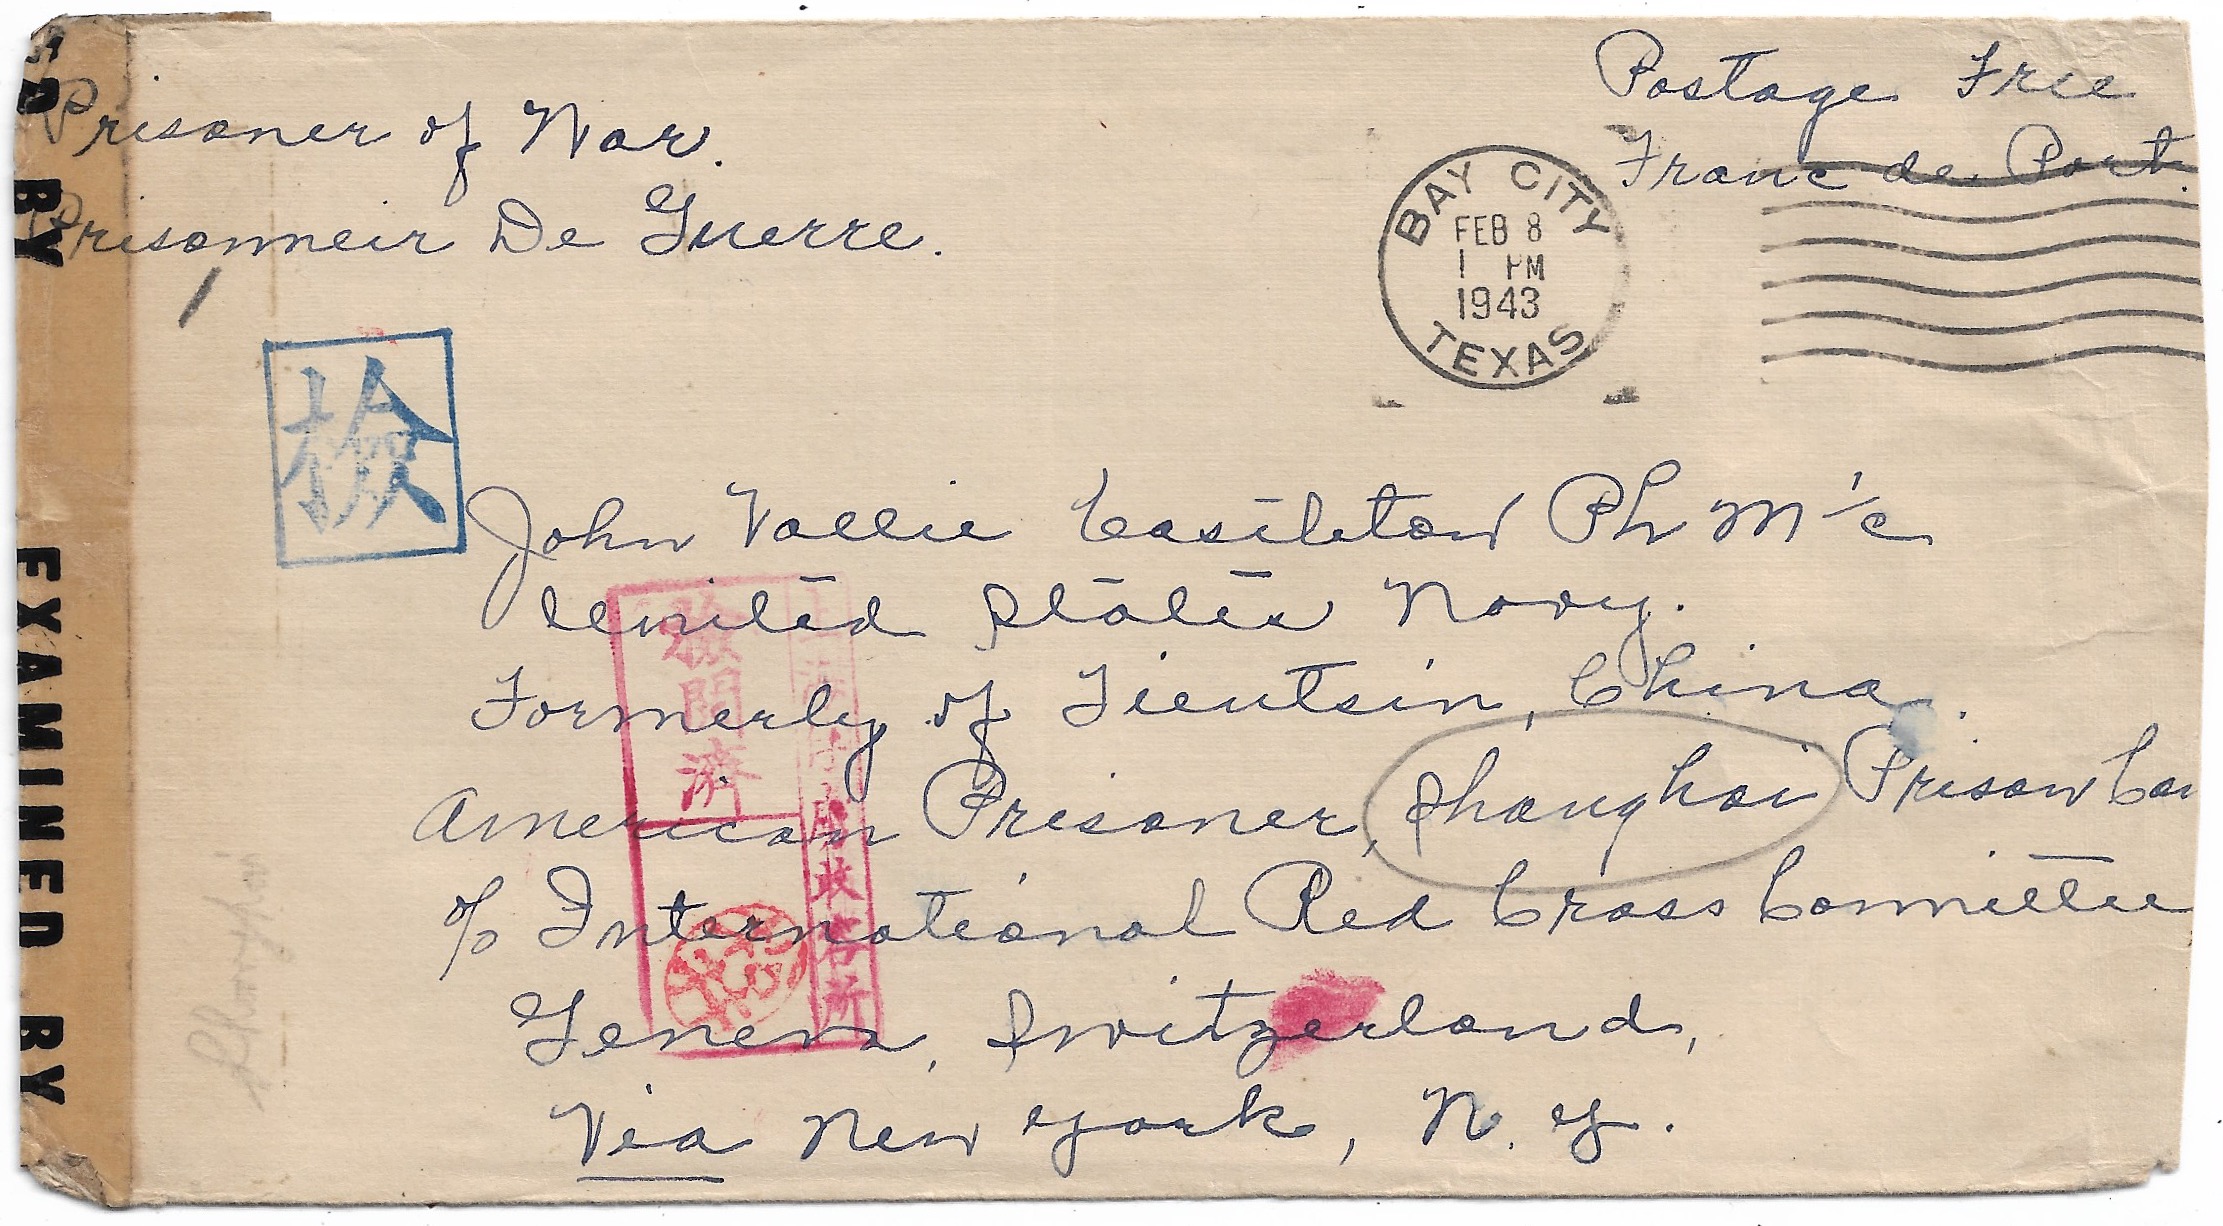 Postage Free
Franc de Port.
Prisoner of War.
Prisonneir De Guerre.
BAY CITY
FEB 8
1 PM
1943
TEXAS
檢
John Vallie Casileton Ph M 1/c
United States Navy.
Formerly of Tientsin, China.
American Prisoner, Shanghai Prison
c/o International Red Cross Committee
Geneva, Switzerland,
Via New York, N. Y.
檢閲濟
上海 收容所
BY
EXAMINED BY